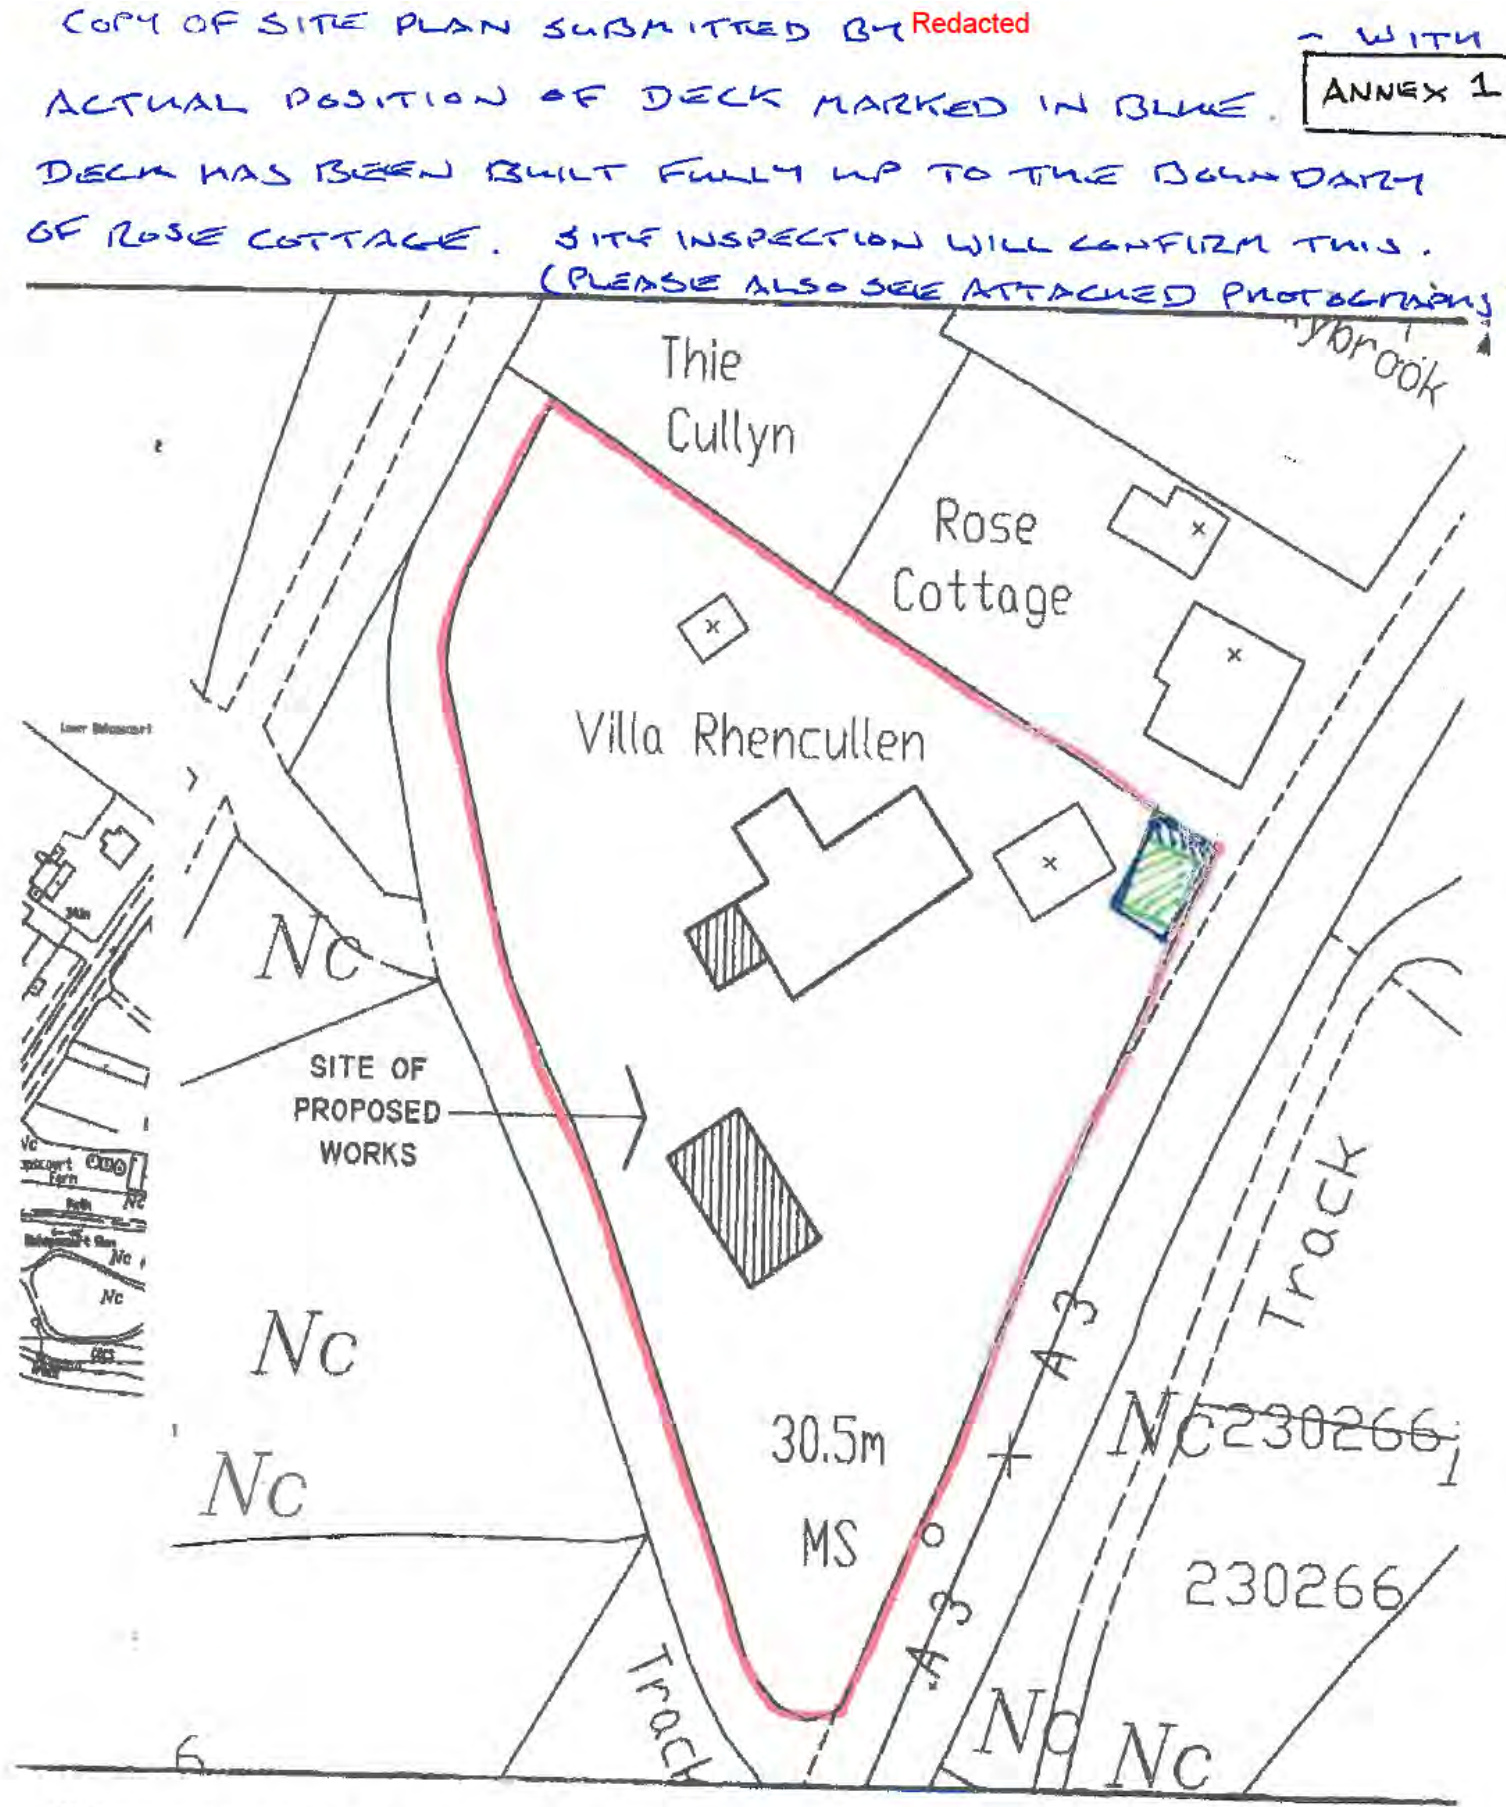 COPY OF SITE PLAN SUBMITTED BY Redacted - WITH
ANNEX 1
ACTUAL POSITION OF DECK MARKED IN BLUE.
DECK HAS BEEN BUILT FULLY UP TO THE BOUNDARY
OF ROSE COTTAGE. SITE INSPECTION WILL CONFIRM THIS.
(PLEASE ALSO SEE ATTACHED PHOTOGRAPHS
ybrook
Thie
Cullyn
Rose
Cottage
Villa Rhencullen
Nc
SITE OF
PROPOSED
WORKS
Track
A 3
Nc
Nc
30.5m
Nc 230266
MS
230266
A 3
Track
Nc
Nc
6
Nc
Nc
Nc